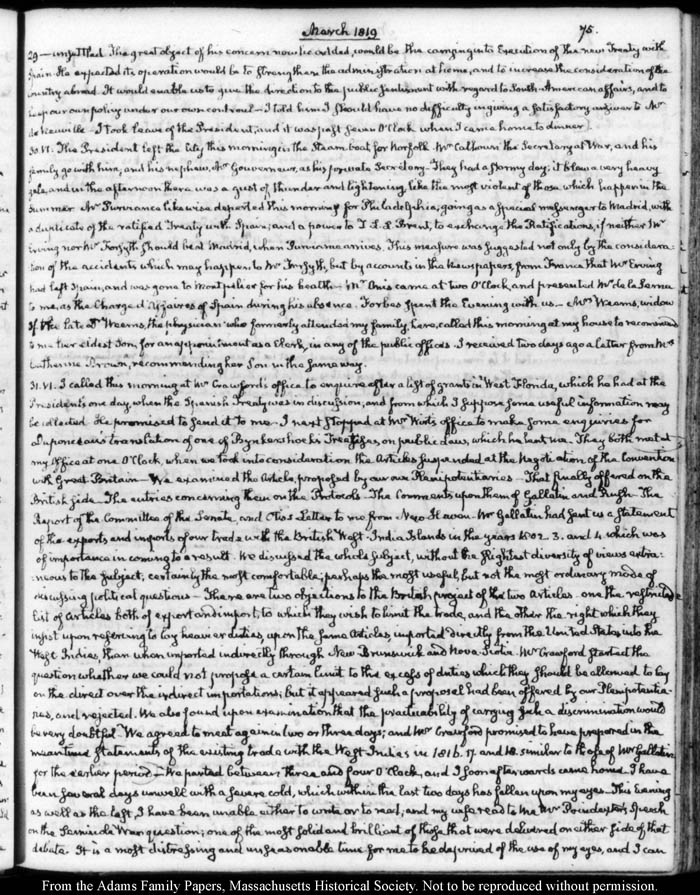 March 1819
75.
29 — unsettled. The great object of his concern now he added, would be the carrying into Execution of the new Treaty with
Spain. He expected its operation would be to strengthen the administration at home, and to increase the consideration of the
Country abroad. It would enable us to give the direction to the public sentiment with regard to South-American affairs, and to
keep our own policy under our own controul — I told him I should have no difficulty in giving a satisfactory answer to Mr
de Neuville — I took leave of the President, and it was past seven O'Clock when I came home to dinner.
30. VI. The President left the City this morning in the Steam boat, for Norfolk. Mr Calhoun the Secretary at War, and his
family go with him, and his nephew, Mr Gouverneur, as his private Secretary. They had a stormy day; it blew a very heavy
gale, and in the afternoon there was a gust of thunder and lightening, like the most violent of those which happen in the
Summer. Mr Purviance likewise departed this morning for Philadelphia, going as a special messenger to Madrid, with
a duplicate of the ratified Treaty with Spain; and a power to T. L. L. Brent, to exchange the Ratifications, if neither Mr
Erving nor Mr Forsyth should be at Madrid, when Purviance arrives. This measure was suggested not only by the considera-
tion of the accidents which may happen to Mr Forsyth, but by accounts in the Newspapers, from France that Mr Erving
had left Spain, and was gone to Montpelier for his health — Mr Onis came at two O'Clock, and presented Mr de la Serna
to me, as the Chargé d'Affaires of Spain during his absence. Forbes spent the Evening with us — Mrs Weems, widow
of the late Dr Weems, the physician who formerly attended my family, here, called this morning at my house to recommend
to me her eldest Son, for an appointment as a Clerk, in any of the public offices. I received two days ago a letter from Mrs
Catherine Brown, recommending her Son in the same way.
31. VI. I called this morning at Mr Crawford's office to enquire after a list of grants in West Florida, which he had at the
Presidents one day, when the Spanish Treaty was in discussion, and from which I suppose some useful information may
be collected. He promised to send it to me. I next stopped at Mr Wirt's office to make some enquiries for
Duponceau's translation of one of Bynkershoek's Treatises, on public Law, which he lent me. They both met at
my Office at one O'Clock, when we took into consideration the Articles suspended at the Negotiation of the Convention
with Great Britain — We examined the Article, proposed by our own Plenipotentiaries — That finally offered on the
British side. The entries concerning them on the Protocols — The Comments upon them of Gallatin and Rush. The
Report of the Committee of the Senate, and Otis's Letter to me from New Haven. Mr Gallatin had sent us a statement
of the exports and imports of our trade with the British West India Islands in the years 1802. 3. and 4 which was
of importance in coming to a result. We discussed the whole subject, without the slightest diversity of views extra-
neous to the subject; certainly the most comfortable; perhaps the most useful, but not the most ordinary mode of
discussing political questions — There are two objections to the British project of the two Articles — one the restricted
list of articles both of export and import, to which they wish to limit the trade, and the other the right which they
insist upon reserving to lay heavier duties, upon the same Articles, imported directly from the United States into the
West Indies, than when imported indirectly through New Brunswick and Nova-Scotia. Mr Crawford started the
question whether we could not propose a certain limit to the excess of duties which they should be allowed to lay
on the direct over the indirect importations; but it appeared such a proposal had been offered by our Plenipotentia-
ries, and rejected. We also found upon examination that the practicability of carrying such a discrimination would
be very doubtful. We agreed to meet again in two or three days; and Mr Crawford promised to have prepared in the
meantime statements of the existing trade with the West Indies in 1816. 17. and 18. similar to those of Mr Gallatin
for the earlier period. — We parted between three and four O'Clock, and I soon afterwards came home. I have
been several days unwell with a severe cold, which within the last two days has fallen upon my eyes. This Evening
as well as the last, I have been unable either to write or to read, and my wife read to me Mr Poindexter's Speech
on the Seminole War question; one of the most solid and brilliant of those that were delivered on either side of that
debate. It is a most distressing and unseasonable time for me to be deprived of the use of my eyes, and I can
From the Adams Family Papers, Massachusetts Historical Society. Not to be reproduced without permission.